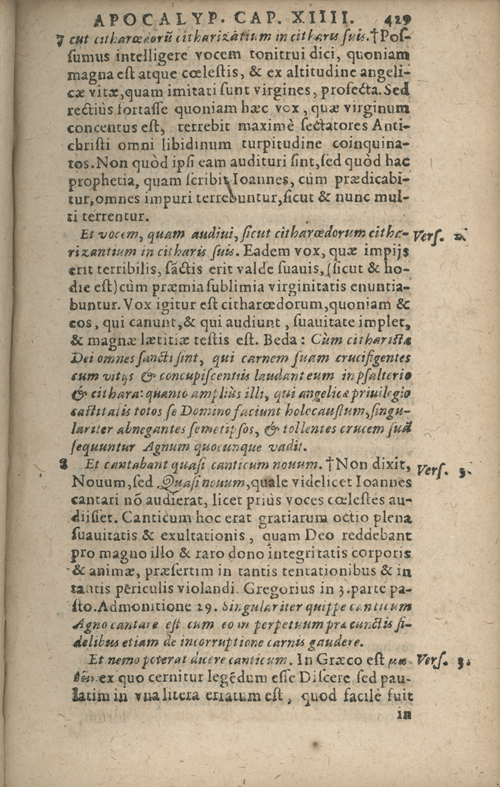 APOCALYP. CAP. XIIII. 429
7 cut citharœdorũ citharizãtium in citharis suis. †Pos-
sumus intelligere vocem tonitrui dici, quoniam
magna est atque cœlestis, & ex altitudine angeli-
cæ vitæ, quam imitati sunt virgines, profecta. Sed
rectiùs fortasse quoniam hæc vox, quæ virginum
concentus est, terrebit maximè sectatores Anti-
christi omni libidinum turpitudine coinquina-
tos. Non quòd ipsi eam audituri sint, sed quòd hac
prophetia, quam scribit Ioannes, cùm prædicabi-
tur, omnes impuri terrebuntur, sicut & nunc mul-
ti terrentur.
Et vocem, quam audiui, sicut citharœdorum citha- Vers. 2.
rizantium in citharis suis. Eadem vox, quæ impijs
erit terribilis, sãctis erit valde suauis, (sicut & ho-
die est) cùm præmia sublimia virginitatis enuntia-
buntur. Vox igitur est citharœdorum, quoniam &
eos, qui canunt, & qui audiunt, suauitate implet,
& magnæ lætitiæ testis est. Beda: Cùm citharistæ
Dei omnes sancti sint, qui carnem suam crucifigentes
cum vitijs & concupiscentiis laudant eum in psalterio
& cithara: quanto ampliùs illi, qui angelicæ priuilegio
castitatis totos se Domino faciunt holocaustum, singu-
lariter abnegantes semetipsos, & tollentes crucem suã
sequuntur Agnum quocunque vadit.
8 Et cantabant quasi canticum nouum. †Non dixit, Vers. 3.
Nouum, sed Quasi nouum, quale videlicet Ioannes
cantari nõ audierat, licet priùs voces cœlestes au-
diisset. Canticum hoc erat gratiarum actio plena
suauitatis & exultationis, quam Deo reddebant
pro magno illo & raro dono integritatis corporis
& animæ, præsertim in tantis tentationibus & in
tantis periculis violandi. Gregorius in 3. parte pa-
sto. Admonitione 29. Singulariter quippe canticum
Agno cantare est cum eo in perpetuum præ cunctis fi-
delibus etiam de incorruptione carnis gaudere.
Et nemo poterat dicere canticum. In Græco est μα- Vers. 3.
θεῖν ex quo cernitur legẽdum esse Discere sed pau-
latim in vna litera erratum est, quod facilè fuit
in